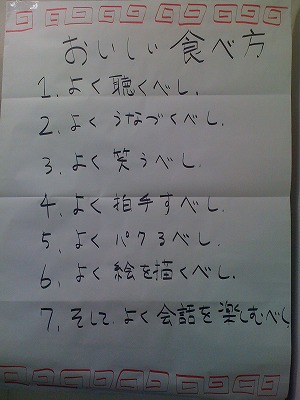 おいしい食べ方
1、よく聴くべし、
2、よくうなづくべし、
3、よく笑うべし、
4、よく拍手すべし、
5、よくパクるべし、
6、よく絵を描くべし、
7、そして、よく会話を楽しむべし